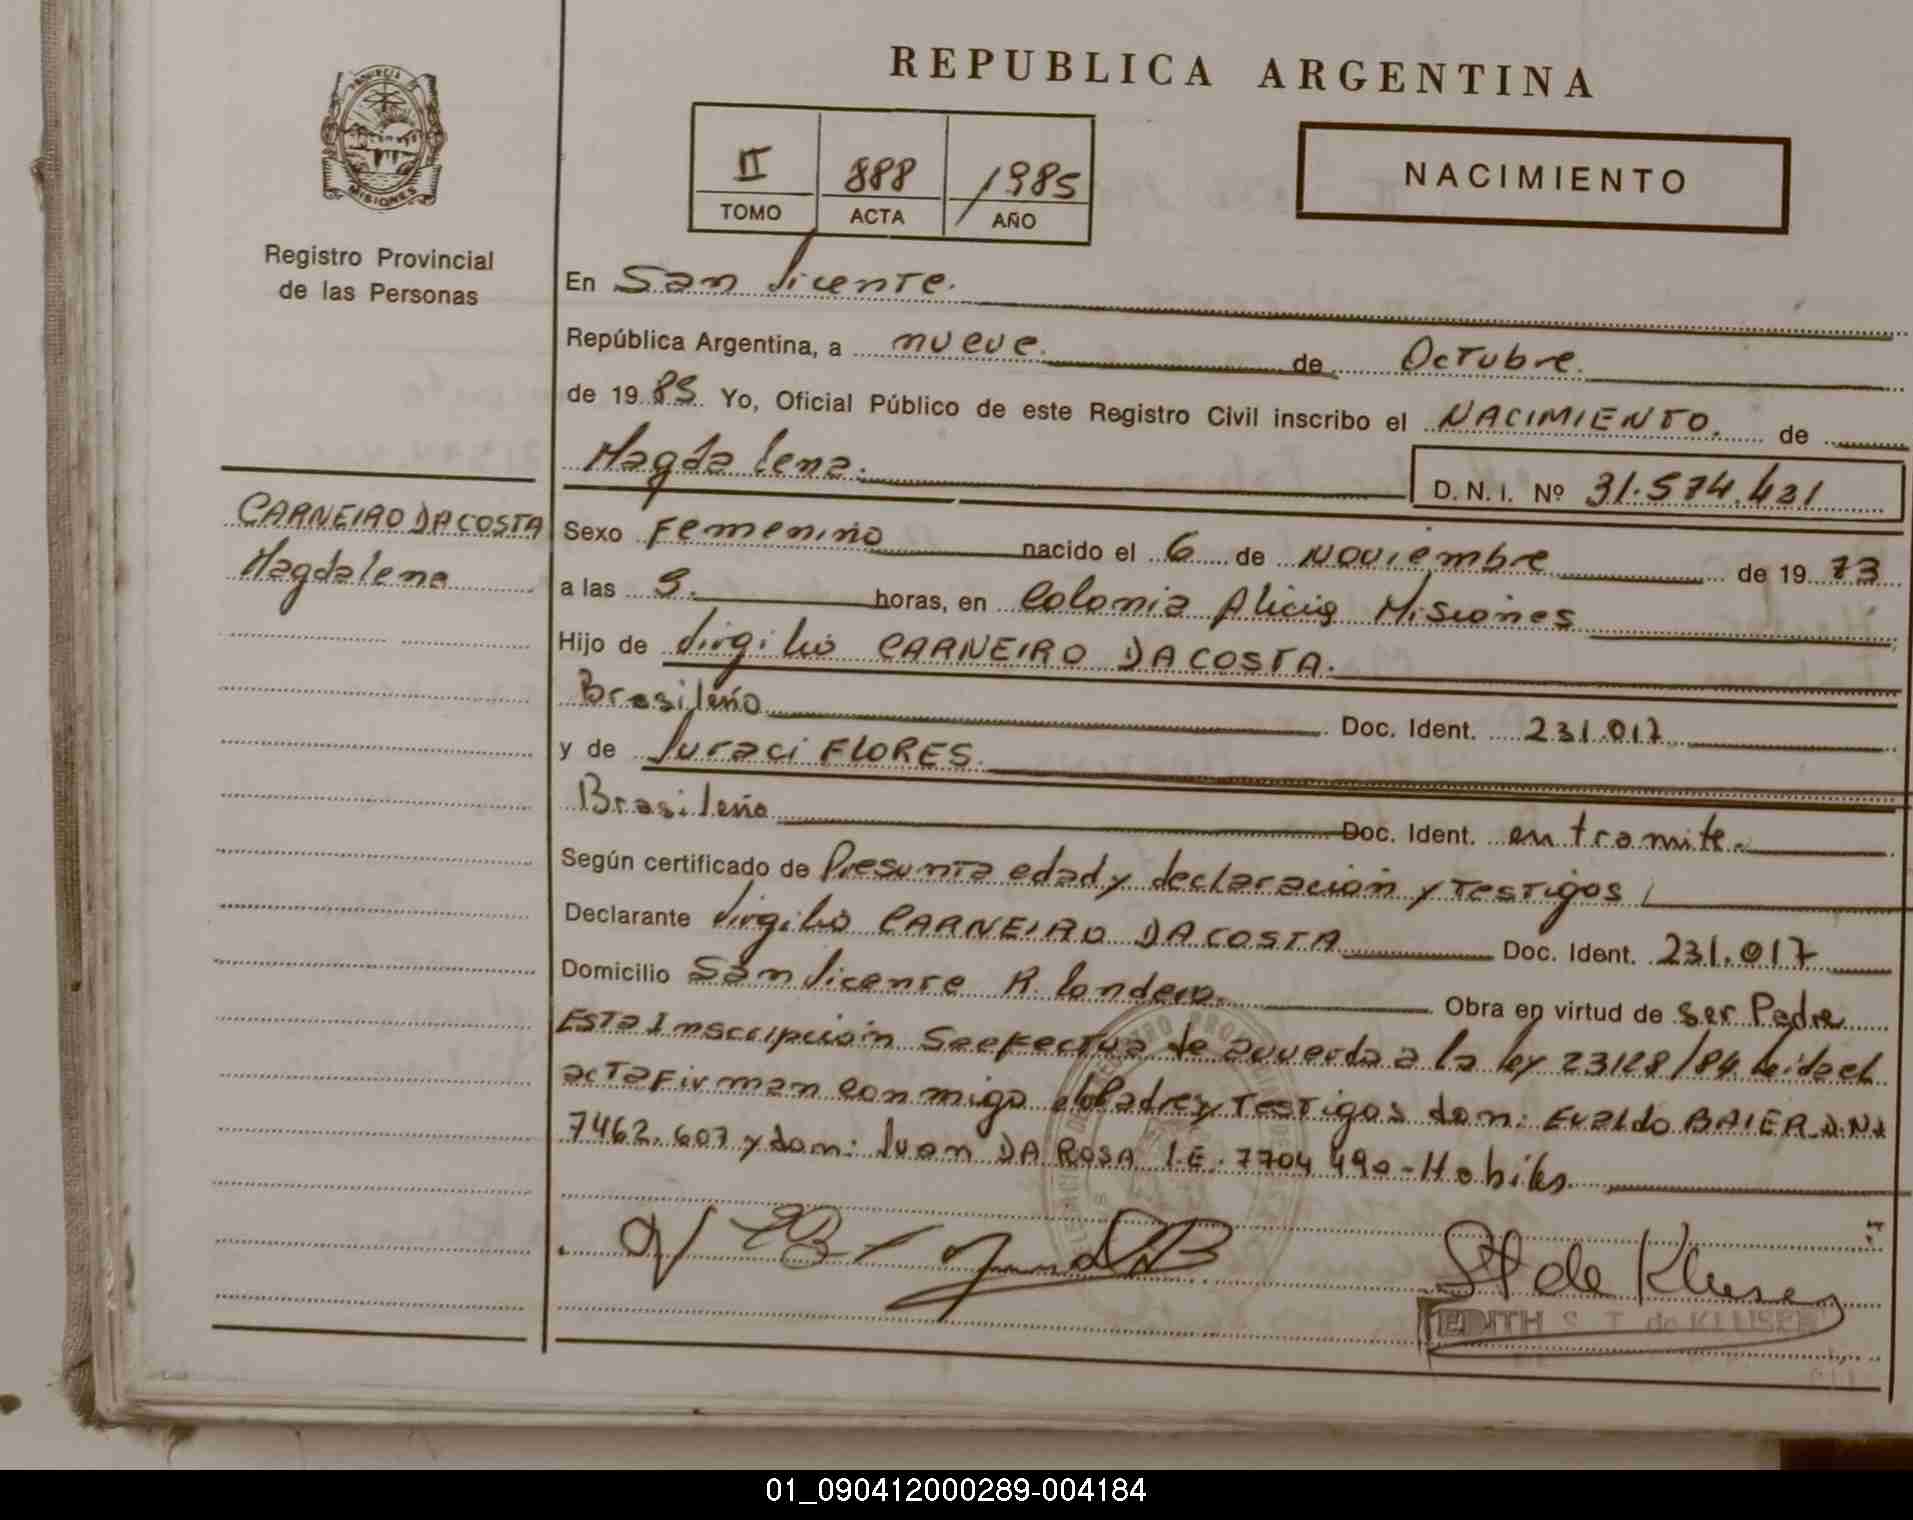 REPUBLICA ARGENTINA
PROVINCIA DE
MISIONES
Registro Provincial
de las Personas
II 888 1985
TOMO ACTA AÑO
NACIMIENTO
En San Vicente.
República Argentina, a nueve. de Octubre.
de 19 85 Yo, Oficial Público de este Registro Civil inscribo el NACIMIENTO. de
Magdalena. D. N. I. Nº 31.574.421
CARNEIRO DA COSTA
Magdalena
Sexo Femenino nacido el 6 de Noviembre de 19 73
a las 9. horas, en Colonia Alicia Misiones
Hijo de Virgilio CARNEIRO DA COSTA.
Brasileño Doc. Ident. 231.017
y de Juraci FLORES.
Brasileña Doc. Ident. en tramite.
Según certificado de Presunta edad y declaración y Testigos
Declarante Virgilio CARNEIRO DA COSTA Doc. Ident. 231.017
Domicilio San Vicente R. Londero. Obra en virtud de ser Padre
Esta Inscripción Se efectua de acuerdo a la ley 23128/84 leida el
acta Firman conmigo el Padre y Testigos don: Evaldo BAIER D.N.I
7462.607 y don: Juan DA ROSA L.E. 7704490 - Hobiles.
St de Kluser
EDITH S. T. de KLUSER
01_090412000289-004184